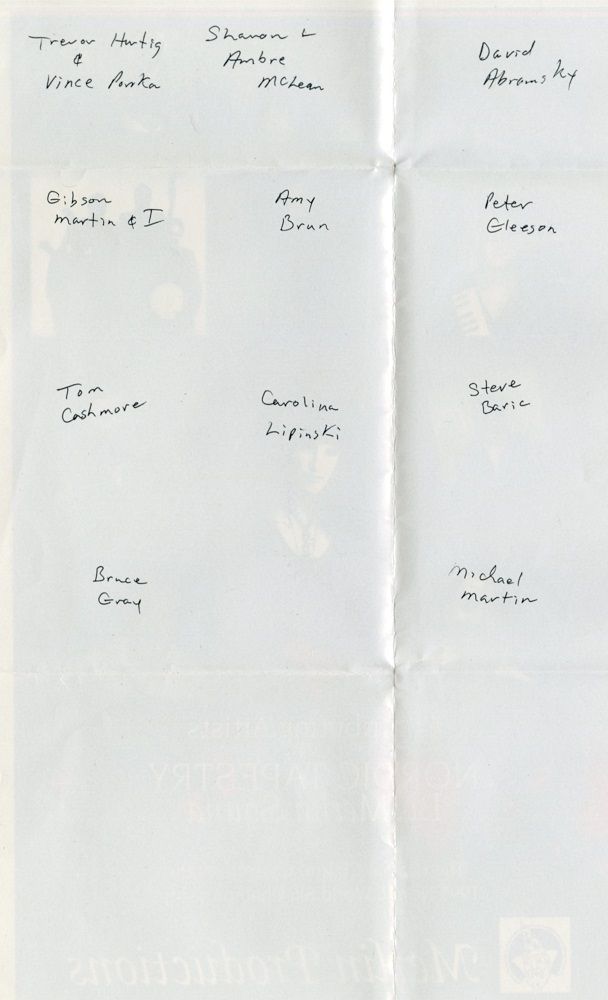 Trevor Hurtig
&
Vince Ponka
Shanon L
Ambre
McLean
David
Abramsky
Gibson
Martin & I
Amy
Brun
Peter
Gleeson
Tom
Cashmore
Carolina
Lipinski
Steve
Baric
Bruce
Gray
Michael
Martin
Artists
NORDIC TAPESTRY
Merlin Productions